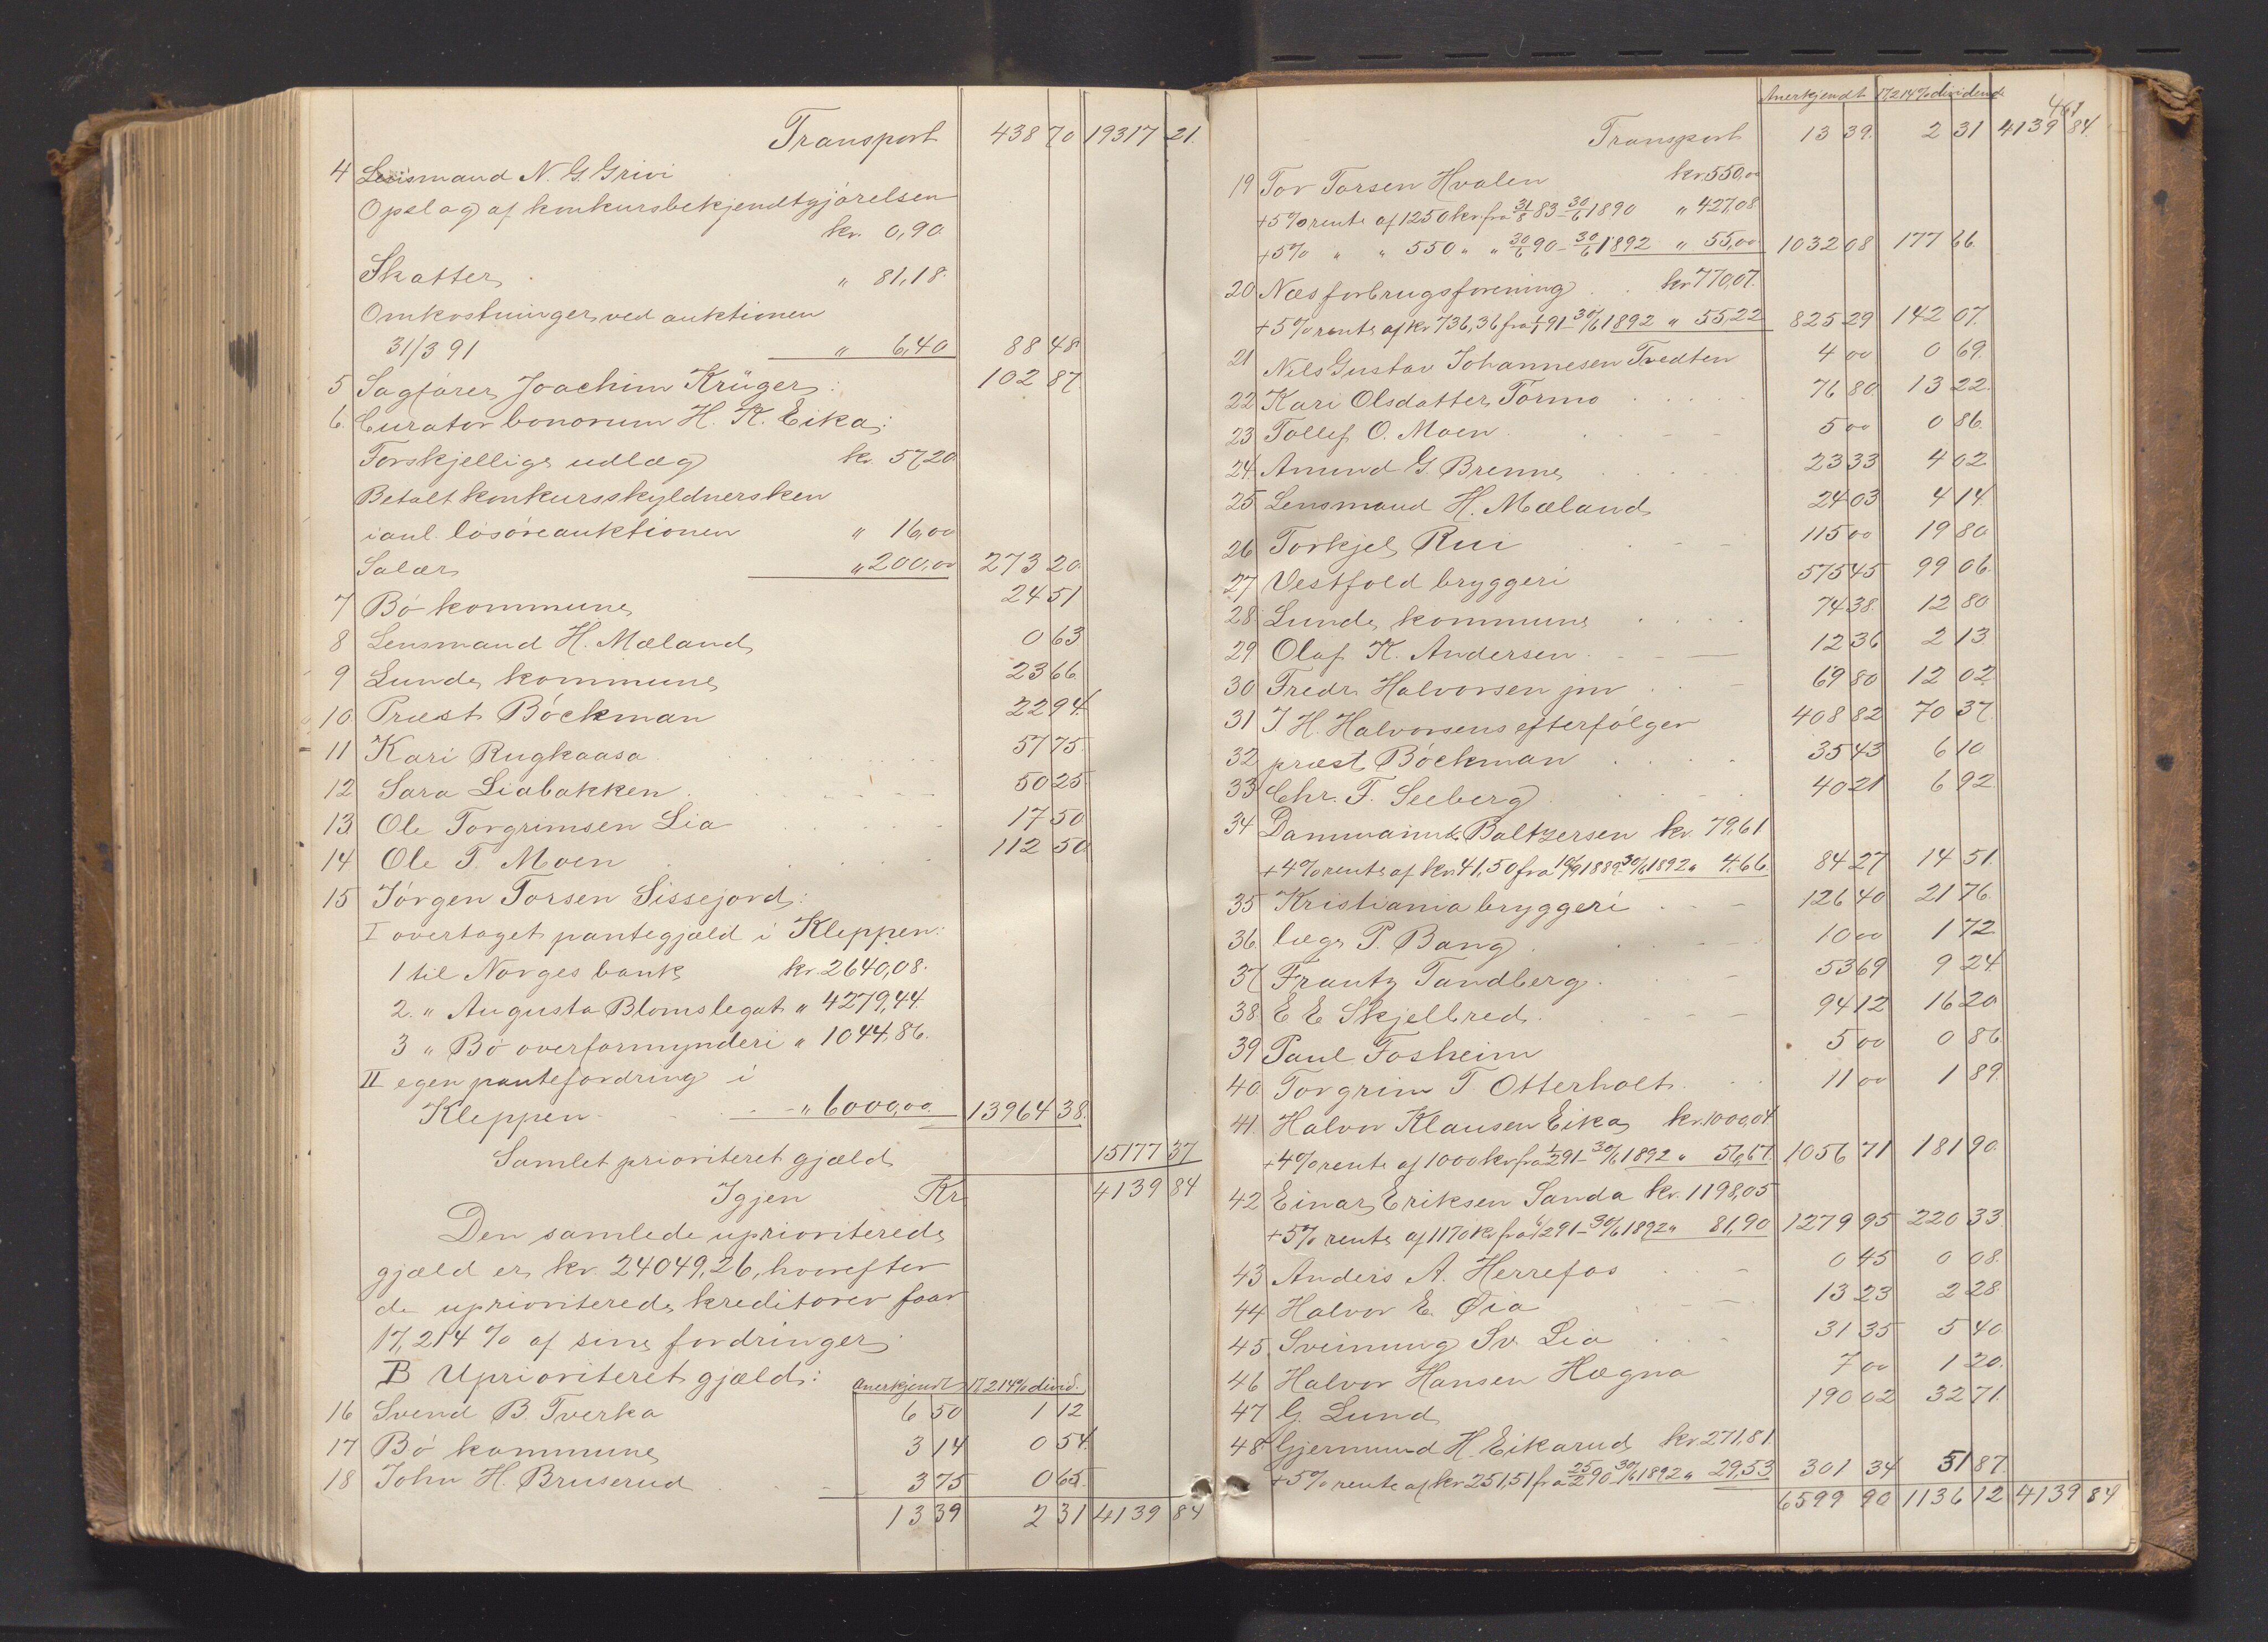 Transport 438 70 19317 21.
4 Lensmand N. G. Grivi
Opslag af konkursbekjendtgjørelsen
kr. 0,90.
Skatter " 81,18.
Omkostninger ved auktionen
31/3 91 " 6,40 88 48.
5 Sagfører Joachim Krüger: 102 87.
6. Curator bonorum H. K. Eika:
Forskjellige udlæg kr. 57,20
Betalt konkursskyldnersken
i anl. løsøreauktionen " 16,00
Salær " 200,00 273 20.
7 Bø kommune 24 51
8 Lensmand H. Mæland 0 63
9 Lunde kommune 23 66.
10. Præst Böckman 22 94.
11 Kari Rugkaasa 57 75.
12 Sara Liabakken 50 25.
13 Ole Torgrimsen Lia 17 50
14 Ole T. Moen 112 50
15 Jørgen Torsen Sissejord:
I overtaget pantegjæld i Kleppen:
1 til Norges bank kr. 2640,08.
2. " Augusta Blomslegat " 4279,44.
3 " Bø overformynderi " 1044,86.
II egen pantefordring i
Kleppen " 6000,00. 13964 38.
Samlet prioriteret gjæld 15177 37
Igjen Kr 4139 84
Den samlede uprioriterede
gjæld er kr. 24049,26, hvorefter
de uprioriterede kreditorer faar
17,214 % af sine fordringer.
B Uprioriteret gjæld: Anerkjendt 17,214% divid.
16 Svend B. Tverka 6 50 1 12
17 Bø kommune 3 14 0 54.
18 John H. Bruserud 3 75 0 65.
13 39 2 31 4139 84
Anerkjendt 17,214% dividende
461
Transport 13 39. 2 31 4139 84.
19 Tov Torsen Hvalen kr. 550,00
+5% rente af 1250 kr. fra 31/8 83 - 30/6 1890 " 427,08
+5% " " 550 " " 30/6 90 - 30/6 1892 " 55,00 1032 08 177 66.
20 Næs forbrugsforening kr 770,07.
+5% rente af kr 736,36 fra 1/1 91 - 30/6 1892 " 55,22 825 29 142 07.
21 Nils Gustav Johannesen Tvedten 4 00 0 69.
22 Kari Olsdatter Tormo 76 80. 13 22.
23 Tollef O. Moen 5 00 0 86.
24. Amund G. Brenne 23 33 4 02.
25 Lensmand H. Mæland 24 03 4 14.
26 Torkjel Rui 115 00 19 80
27 Vestfold bryggeri 575 45 99 06.
28. Lunde kommune 74 38. 12 80
29 Olaf K. Andersen 12 36 2 13.
30 Fredr. Halvorsen jnr 69 80 12 02.
31 J H. Halvorsens efterfølger 408 82 70 37.
32 præst Böckman 35 43 6 10
33 Chr. F. Seeberg 40 21 6 92.
34 Dammann & Baltzersen kr. 79,61
+4% rente af kr. 41,50 fra 10/9 1889 - 30/6 1892 " 4,66. 84 27 14 51.
35 Kristiania bryggeri 126 40 21 76.
36. læge P. Bang 10 00 1 72
37 Frantz Tandberg 53 69 9 24
38 E E Skjelbred 94 12 16 20
39 Paul Fosheim 5 00 0 86.
40. Torgrim T. Otterholt 11 00 1 89.
41. Halvor Klausen Eika kr. 1000,04
+4% rente af 1000 kr fra 1/2 91 - 30/6 1892 " 56,67 1056 71 181 90.
42 Einar Eriksen Sanda kr. 1198,05
+5% rente af 1170 kr fra 6/2 91 - 30/6 1892 " 81,90 1279 95 220 33.
43 Anders A. Herrefos 0 45 0 08.
44 Halvor E. Øia 13 23 2 28
45. Sveinung Sv. Lia 31 35 5 40
46 Halvor Hansen Hægna 7 00 1 20.
47 G. Lund 190 02 32 71.
48 Gjermund H. Eikarud kr. 271,81.
+5% rente af kr 251,51 fra 25/2 90 - 30/6 1892 " 29,53 301 34 51 87.
6599 90 1136 12 4139 84